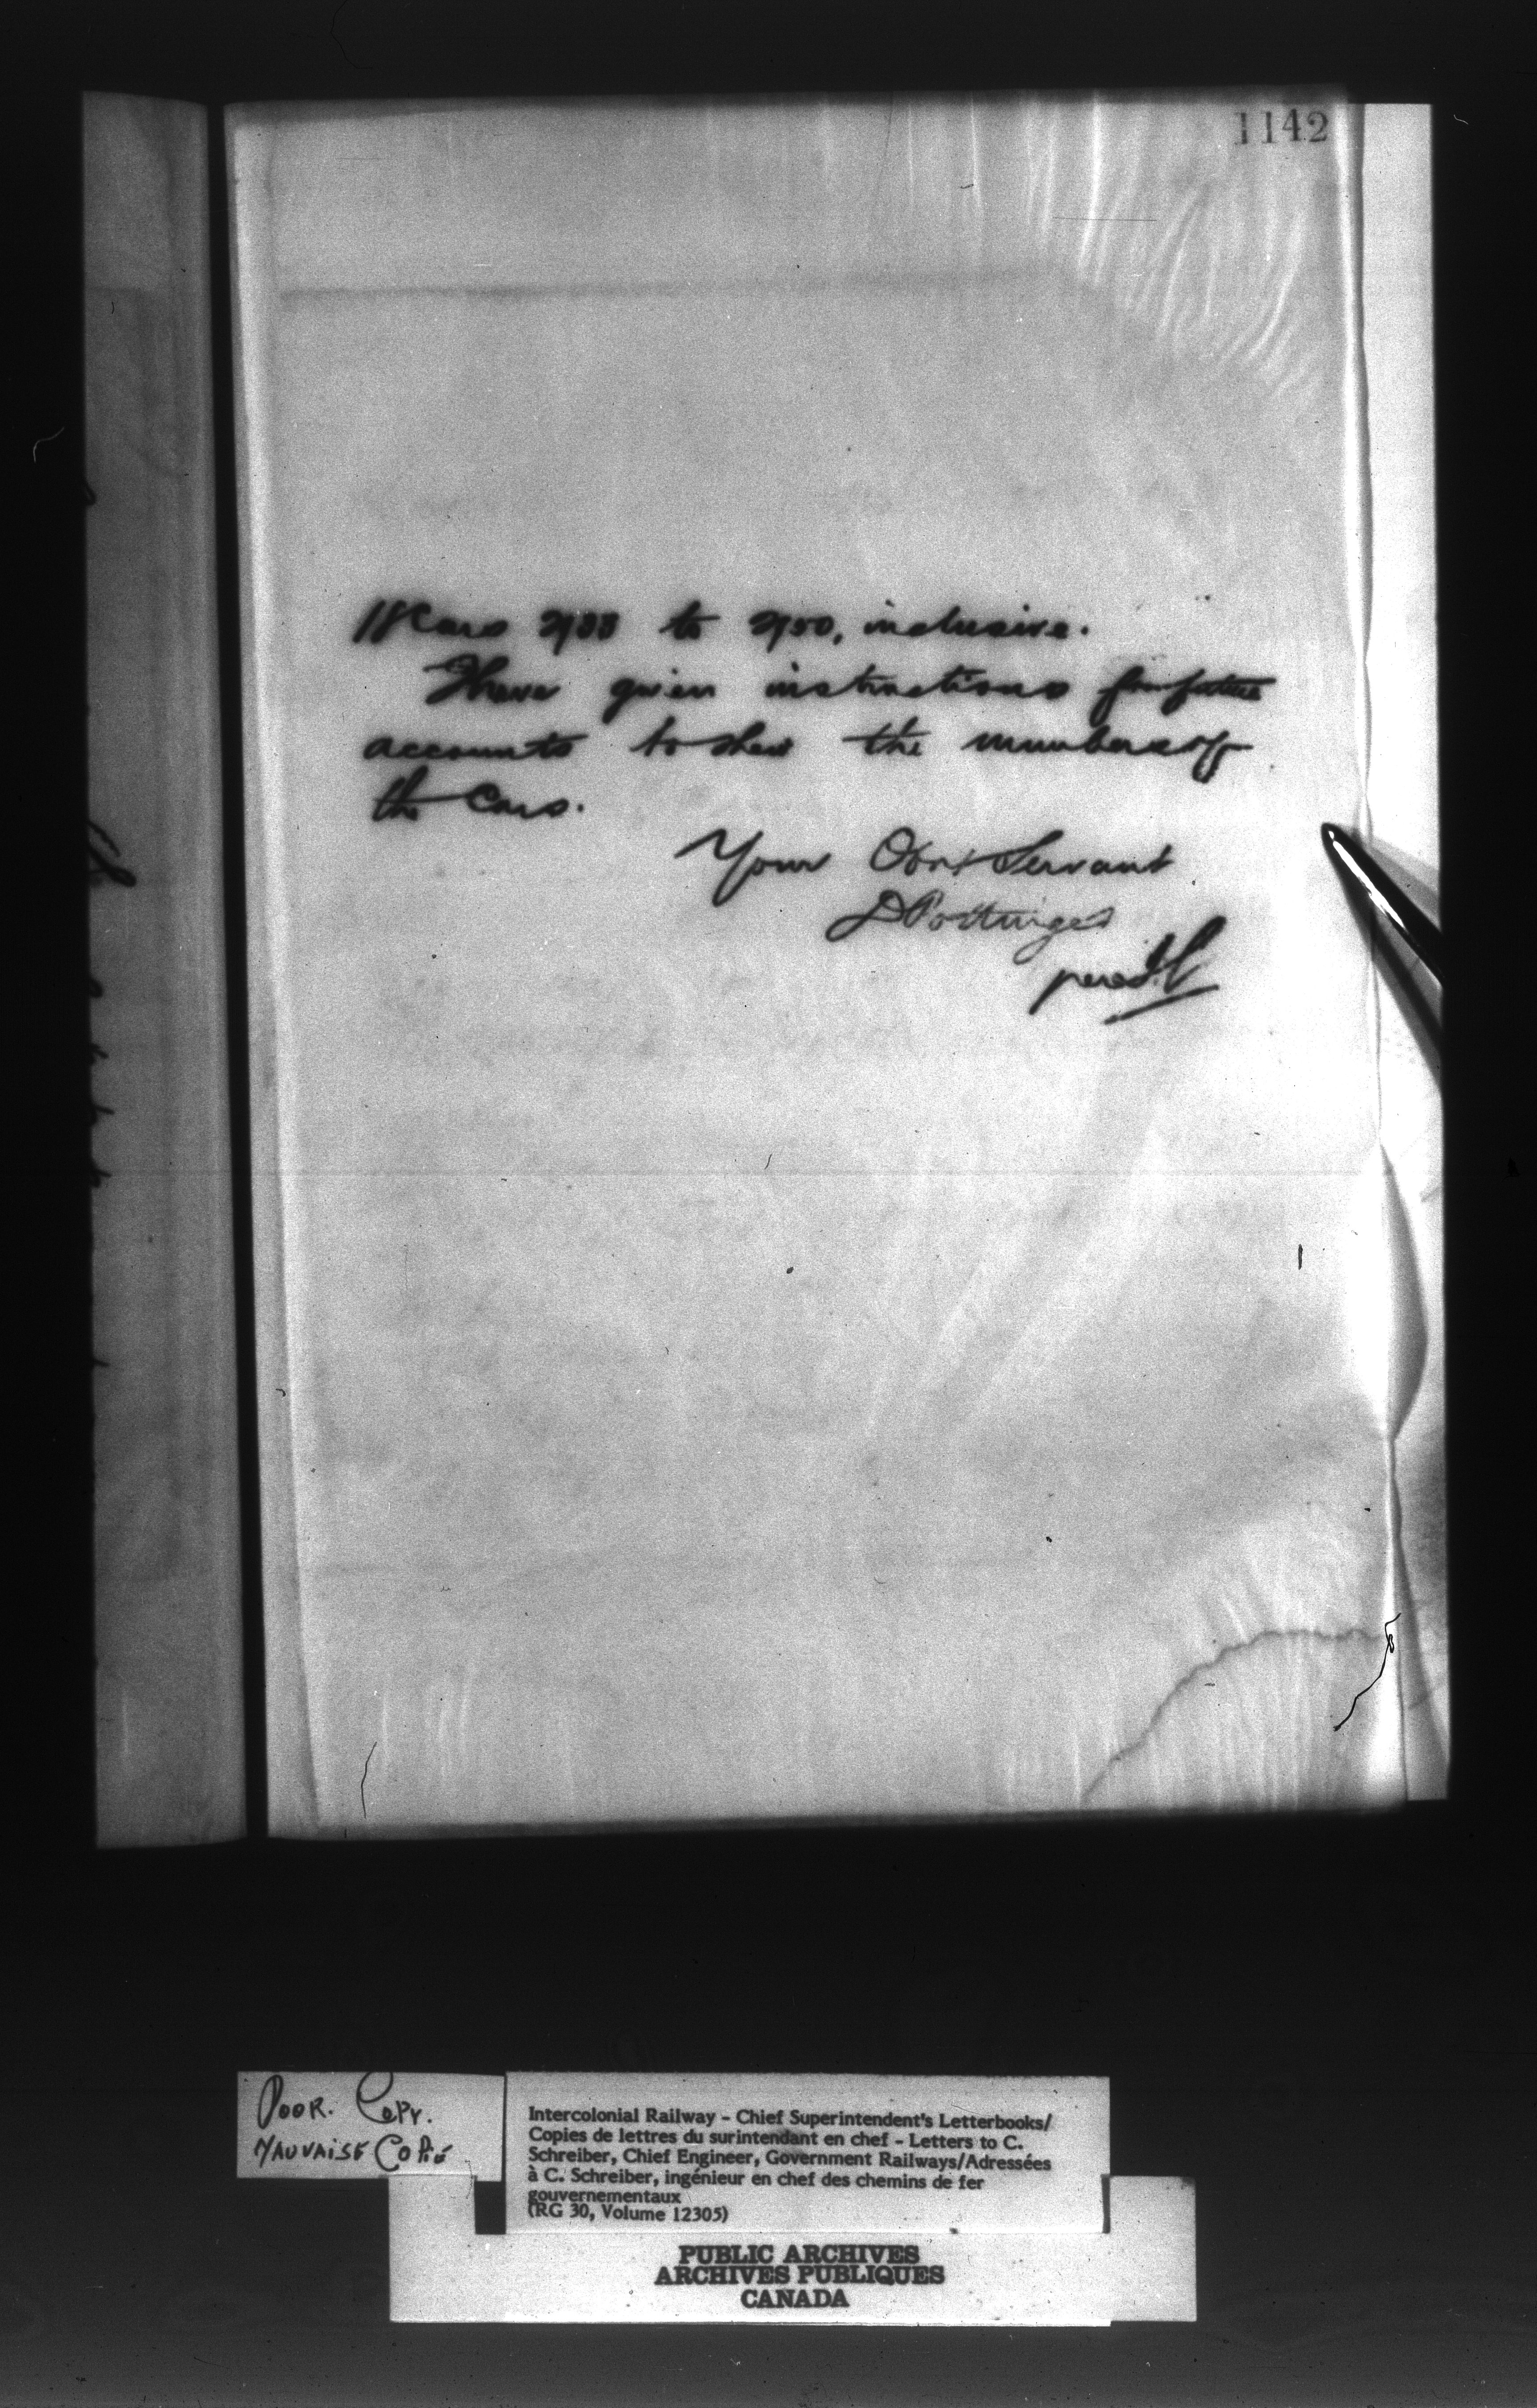 1142
18 Cars 2933 to 2950, inclusive.
Have given instructions for future
accounts to shew the numbers of
the Cars.
Your Obt Servant
D Pottinger
per
POOR. COPY.
MAUVAISE COPIE
Intercolonial Railway – Chief Superintendent's Letterbooks/
Copies de lettres du surintendant en chef – Letters to C.
Schreiber, Chief Engineer, Government Railways/Adressées
à C. Schreiber, ingénieur en chef des chemins de fer
gouvernementaux
(RG 30, Volume 12305)
PUBLIC ARCHIVES
ARCHIVES PUBLIQUES
CANADA